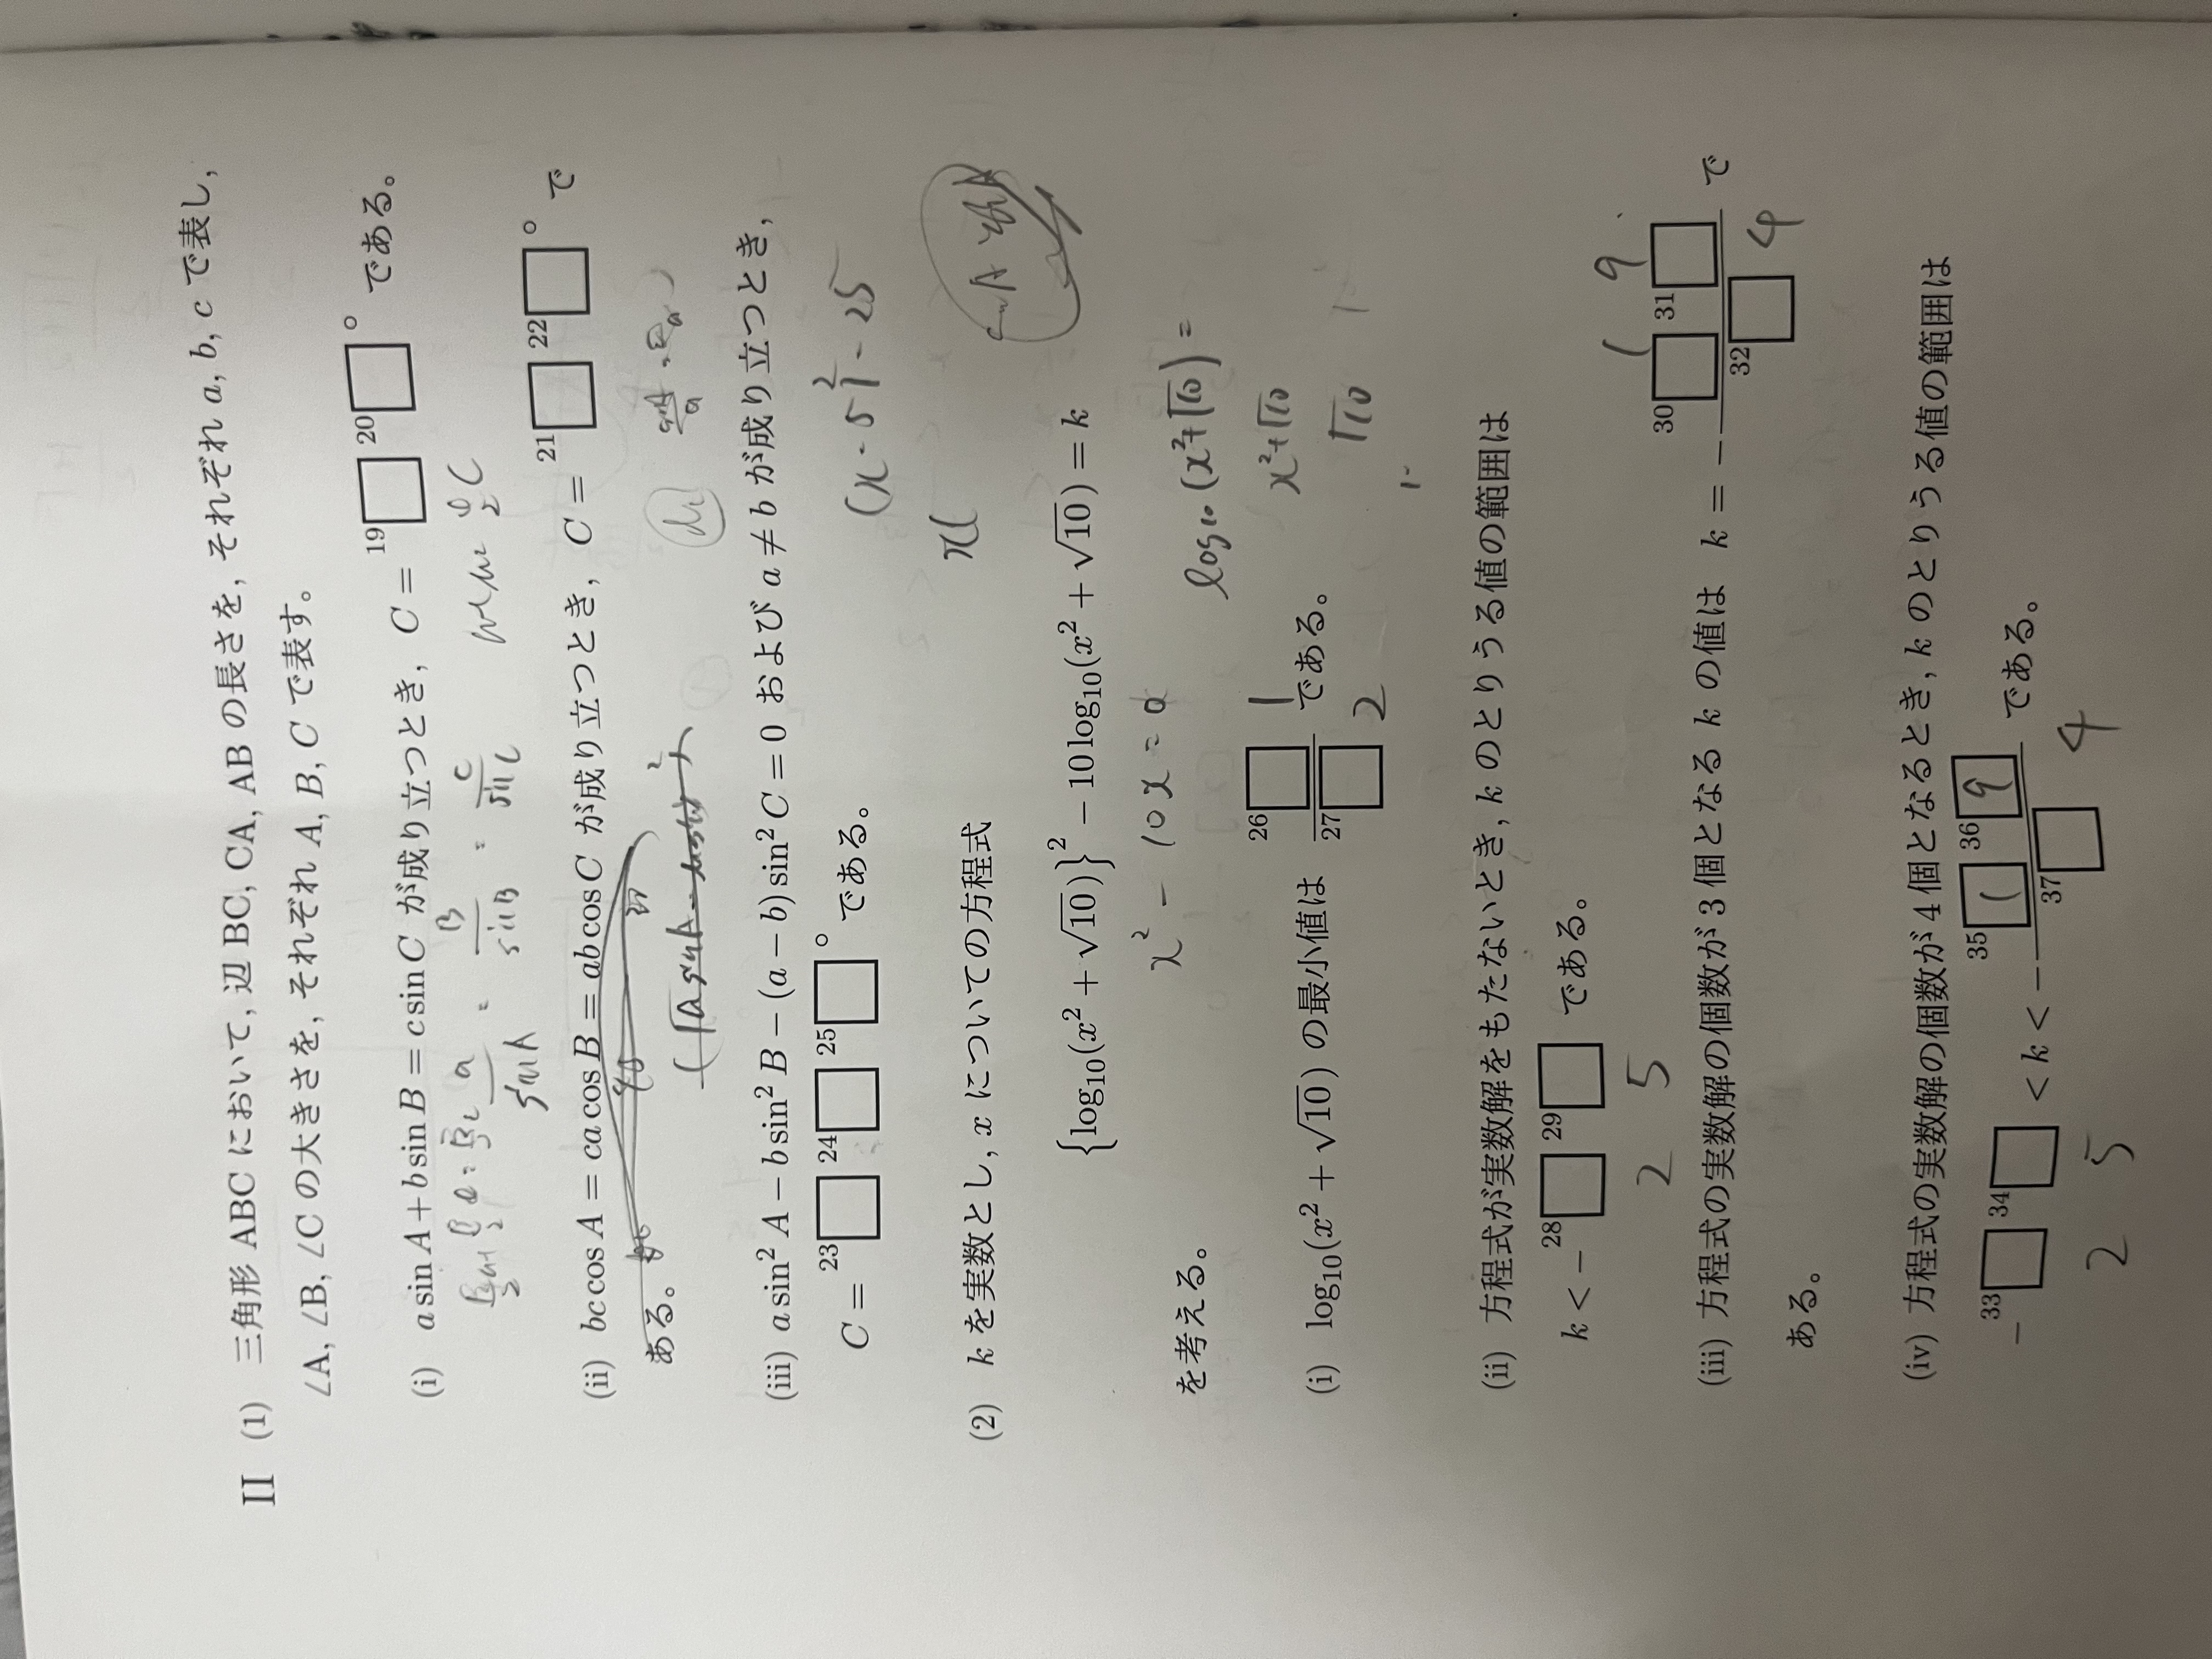 II (1) 三角形 ABC において, 辺 BC, CA, AB の長さを, それぞれ a, b, c で表し,
∠A, ∠B, ∠C の大きさを, それぞれ A, B, C で表す。
(i) a sin A + b sin B = c sin C が成り立つとき, C = 19□ 20□° である。
a/sinA = B/sinB = C/sinC
(ii) bc cos A = ca cos B = ab cos C が成り立つとき, C = 21□ 22□° で
ある。
(iii) a sin² A − b sin² B − (a − b) sin² C = 0 および a ≠ b が成り立つとき,
C = 23□ 24□ 25□° である。
(x-5)²-25
x(
(2) k を実数とし, x についての方程式
{log₁₀(x² + √10)}² − 10 log₁₀(x² + √10) = k
x² − 10x = a
を考える。
log₁₀ (x²+√10) =
(i) log₁₀(x² + √10) の最小値は 26□/27□ である。
1
2
x²+√10
√10
(ii) 方程式が実数解をもたないとき, k のとりうる値の範囲は
k < − 28□ 29□ である。
2 5
(iii) 方程式の実数解の個数が 3 個となる k の値は k = − 30□ 31□/32□ で
1 9
4
ある。
(iv) 方程式の実数解の個数が 4 個となるとき, k のとりうる値の範囲は
− 33□ 34□ < k < − 35□ 36□/37□ である。
1 9
2 5
4